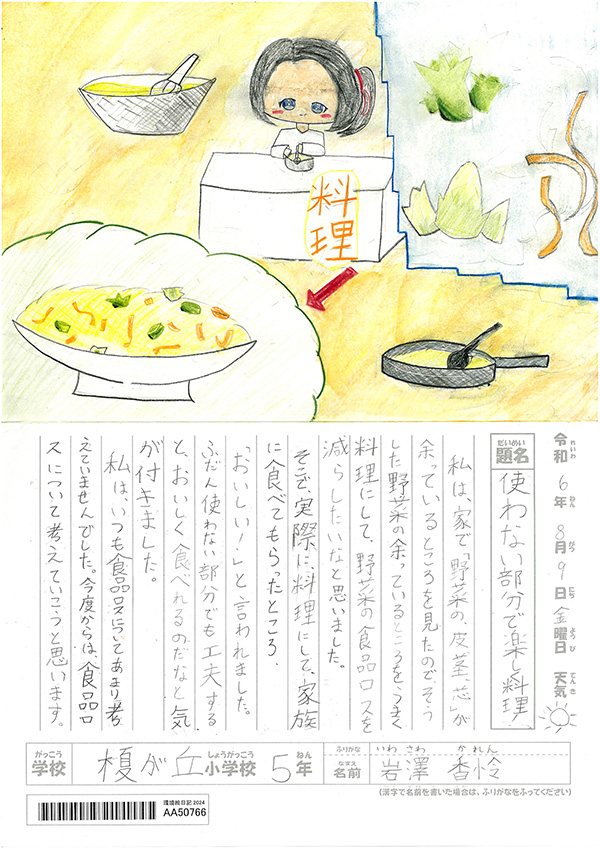 料理
令和6年8月9日金曜日 天気
れいわ ねん がつ にち ようび てんき
だいめい
題名
使わない部分で楽し料理
私は、家で「野菜の、皮、茎、芯」が
余っているところを見たので、そう
した野菜の余っているところをうまく
料理にして、野菜の食品ロスを
減らしたいなと思いました。
そこで、実際に、料理にして、家族
に食べてもらったところ、
「おいしい!」と言われました。
ふだん使わない部分でも工夫する
と、おいしく食べれるのだなと気
が付きました。
私は、いつも食品ロスについてあまり考
えていませんでした。今度からは、食品ロ
スについて考えていこうと思います。
がっこう
学校
榎が丘
しょうがっこう
小学校
5年
ねん
ふりがな
いわ さわ かれん
なまえ
名前
岩澤 香怜
(漢字で名前を書いた場合は、ふりがなをふってください)
環境絵日記2024
AA50766